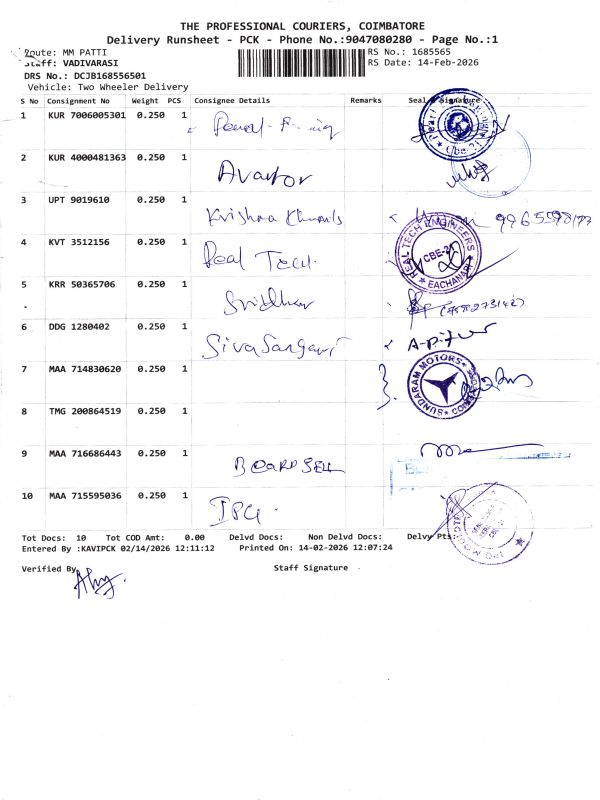 THE PROFESSIONAL COURIERS, COIMBATORE
Delivery Runsheet - PCK - Phone No.:9047080280 - Page No.:1
Route: MM PATTI RS No.: 1685565
Staff: VADIVARASI RS Date: 14-Feb-2026
DRS No.: DCJB168556501
Vehicle: Two Wheeler Delivery
S No Consignment No Weight PCS Consignee Details Remarks Seal & Signature
1 KUR 7006005301 0.250 1 Pearl
2 KUR 4000481363 0.250 1 Avator
3 UPT 9019610 0.250 1 Krishna
4 KVT 3512156 0.250 1 Real Tech. REAL TECH ENGINEERS CBE-21 EACHANARI
5 KRR 50365706 0.250 1 Sridhar
6 DDG 1280402 0.250 1
7 MAA 714830620 0.250 1 SUNDARAM MOTORS
8 TMG 200864519 0.250 1
9 MAA 716686443 0.250 1 BEARDSELL
10 MAA 715595036 0.250 1
Tot Docs: 10 Tot COD Amt: 0.00 Delvd Docs: Non Delvd Docs: Delvy Pts:
Entered By :KAVIPCK 02/14/2026 12:11:12 Printed On: 14-02-2026 12:07:24
Verified By Staff Signature